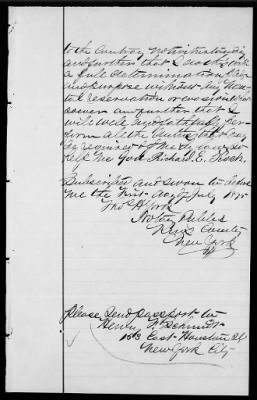 to the contrary notwithstanding
and further that I do so with
a full determination
and purpose without any men-
tal reservation or evasion what-
soever and further that I
will well and faithfully per-
form all the duties that may
be required of me by law. So
help me God. Richard E.
Subscribed and sworn to before
me the first day of July 18
York
Notary Public
Kings County
New York
Please send passport to
Henry W. Schmidt
East Houston St
New York City